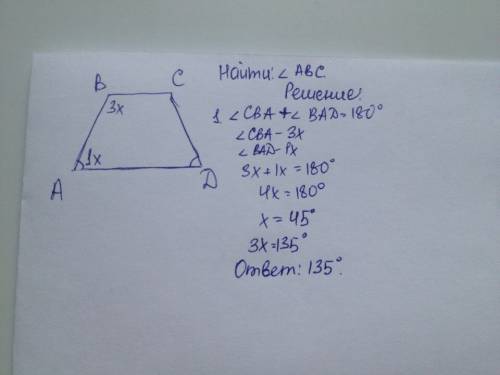 Найти: ∠ ABC.
Решение:
1. ∠ CBA + ∠ BAD = 180°
∠ CBA - 3x
∠ BAD - 1x
3x + 1x = 180°
4x = 180°
x = 45°
3x = 135°
Ответ: 135°.
B C
3x
1x
A D